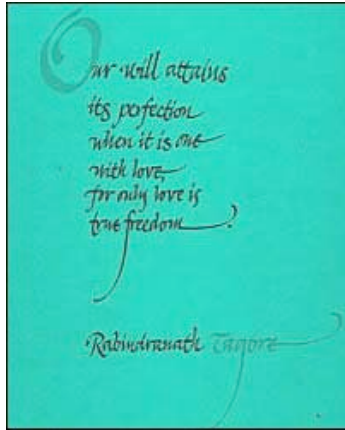 Our will attains
its perfection
when it is one
with love,
for only love is
true freedom
Rabindranath Tagore